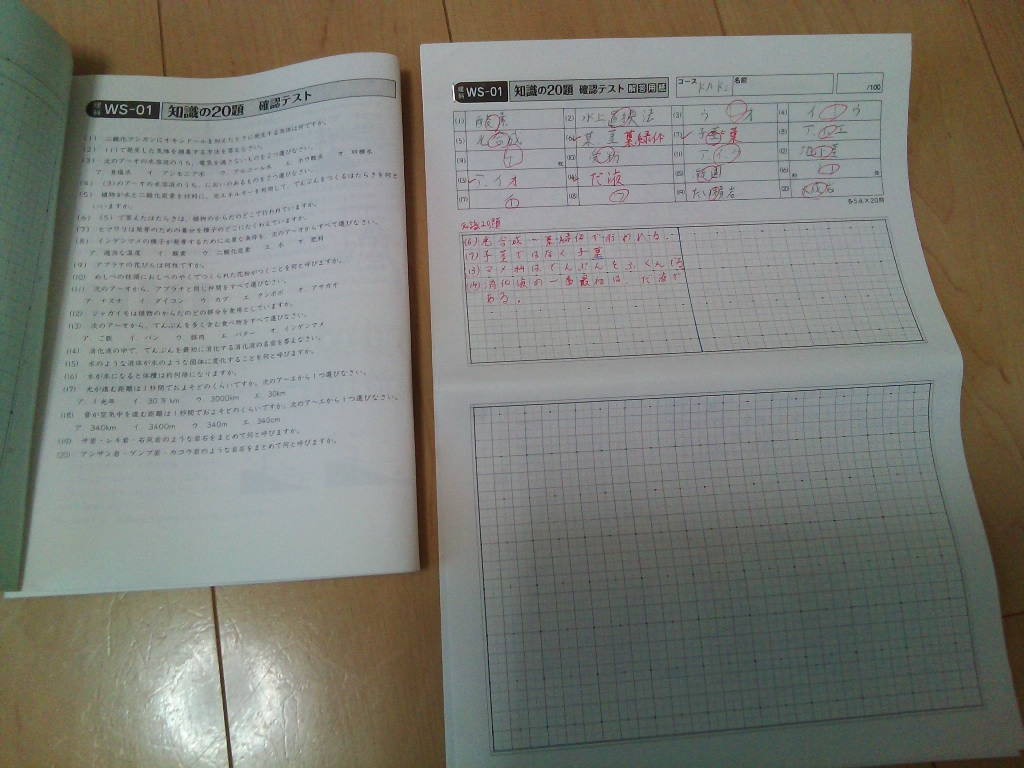 理科 WS-01 知識の20題 確認テスト
(1) 二酸化マンガンにオキシドールを加えたときに発生する気体は何ですか。
(2) (1)で発生した気体を捕集する方法を答えなさい。
(3) 次のア〜オの水溶液のうち、電気を通さないものを2つ選びなさい。
ア 食塩水 イ アンモニア水 ウ アルコール水 エ ホウ酸水 オ 砂糖水
(4) (3)のア〜オの水溶液のうち、においのあるものを2つ選びなさい。
(5) 植物が水と二酸化炭素を材料に、光エネルギーを利用して、でんぷんをつくるはたらきを何と
いいますか。
(6) (5)で答えたはたらきは、植物のからだのどこで行われていますか。
(7) ヒマワリは発芽のための養分を種子のどこにたくわえていますか。
(8) インゲンマメの種子が発芽するために必要な条件を、次のア〜オからすべて選びなさい。
ア 適当な温度 イ 酸素 ウ 二酸化炭素 エ 水 オ 肥料
(9) アブラナの花びらは何枚ですか。
(10) めしべの柱頭におしべのやくでつくられた花粉がつくことを何と呼びますか。
(11) 次のア〜オから、アブラナと同じ仲間をすべて選びなさい。
ア ナズナ イ ダイコン ウ カブ エ タンポポ オ アサガオ
(12) ジャガイモは植物のからだのどの部分を食用としていますか。
(13) 次のア〜オから、でんぷんを多く含む食べ物をすべて選びなさい。
ア ご飯 イ パン ウ 豚肉 エ バター オ インゲンマメ
(14) 消化液の中で、でんぷんを最初に消化する消化液の名前を答えなさい。
(15) 水のような液体が氷のような固体に変化することを何と呼びますか。
(16) 水が氷になると体積は約何倍になりますか。
(17) 光が進む距離は1秒間でおよそどのくらいですか。次のア〜エから1つ選びなさい。
ア 1光年 イ 30万km ウ 3000km エ 30km
(18) 音が空気中を進む距離は1秒間でおよそどのくらいですか。次のア〜エから1つ選びなさい。
ア 340km イ 3400m ウ 340m エ 340cm
(19) 砂岩・レキ岩・石灰岩のような岩石をまとめて何と呼びますか。
(20) アンザン岩・ゲンブ岩・カコウ岩のような岩石をまとめて何と呼びますか。
理科 WS-01 知識の20題 確認テスト 解答用紙 コース 名前 /100
(1) 酸素 (2) 水上置換法 (3) ウ オ (4) イ ウ
(5) 光合成 (6) 葉 葉緑体 (7) 子葉 (8)
(9) 枚 (10) 受粉 (11) ア,イ,ウ (12) 地下茎
(13) ア,イ,オ (14) だ液 (15) 凝固 (16) 倍
(17) イ (18) ウ (19) たい積岩 (20) 火成岩
各5点×20問
知識20題
(6) 光合成→葉緑体で行われる。
(7) 子葉
(13) マメ科はでんぷんをふくんでる
(14) 消化液の一番最初は、だ液で
ある。